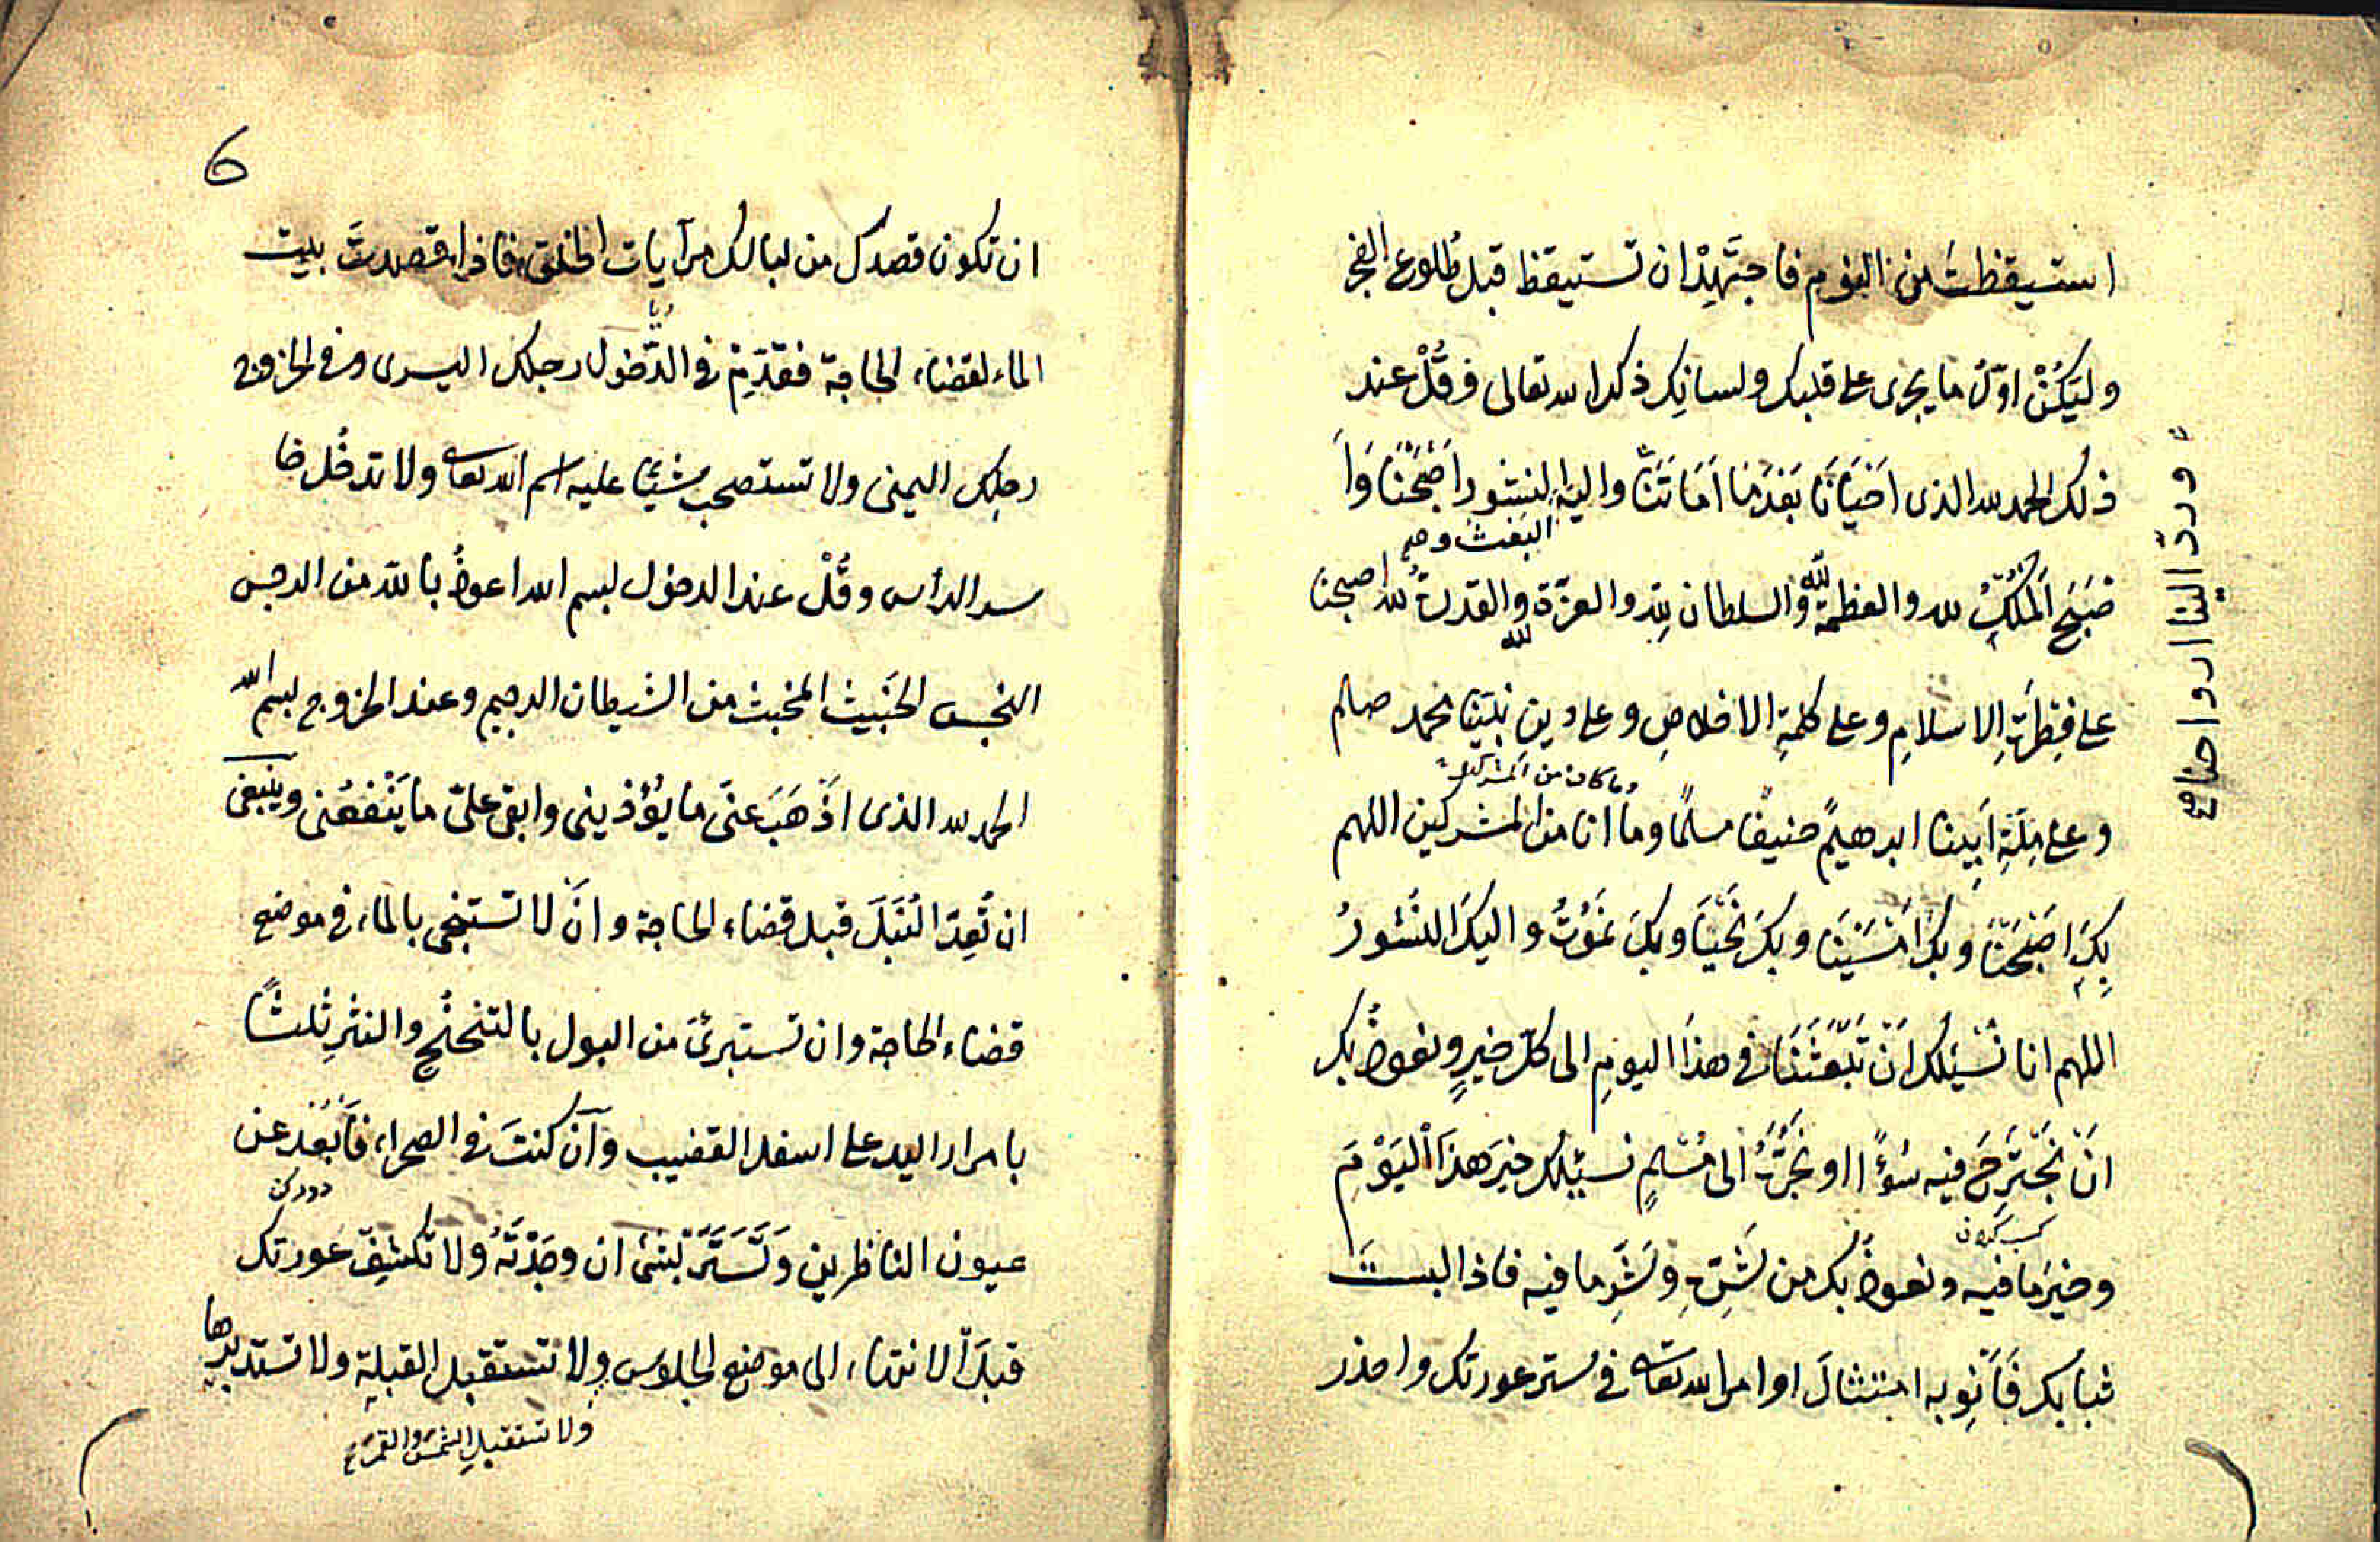 استيقظتَ من النوم فاجتَهِدْ ان تستيقظ قبل طُلوع الفجر
وليَكُنْ اوّلُ ما يجرى على قلبك ولسانِك ذكر الله تعالى فقُلْ عند
ذلك الحمد لله الذى اَحْيَانَا بَعْدَمَا اَمَاتَنَا واليه النشور اَصْبَحْنَا وَاَ
البعث وهو
صْبَحَ اَلْمُلْكُ لله والعظمة لله والسلطان لِلّه والعزّة لله والقدرة لله اصبحنا
على فِطْرَةِ الاسلامِ وعلى كلمةِ الاخلاصِ وعلى دين نبيّنا محمد صلعم
وما كان من المشركين
وعلى مِلّةِ اَبِينا ابرهيمً حنيفًا مسلمًا وما انا من المشركين اللهم
بِكَ اَصْبَحْنَا وبك اَمْسَيْنَا وبكَ نَحْيَا وبكَ نَمُوْتُ واليكَ النُشورُ
اللهم انا نَسْئلك اَنْ تَبْعَثَنَا فى هذَا اليومِ الى كلّ خيرٍ ونعوذُ بك
انْ نَجْتَرِحَ فيه سُوْءًا او نَجُرَّهُ الى مُسْلمٍ نسئلك خيرَ هذَا الْيَوْمَ
كسب كردن
وخيرَ ما فيه ونعوذُ بك من شَرِّهِ وشَرِّ ما فيه فاذا لبستَ
ثيابك فَاَنْوِ به امتثالَ اوامر الله تعالى فى ستر عورتك واحذر
وردّ الينا ارواحنا صح
6
ان تكون قصدك من لباسك مرآيات الخلق فاذا قصدتَ بيت
الماء لقضاء الحاجة فقدّمْ فى الدّخول رجلك اليسرى وفى الخروج
رجلك اليمنى ولا تستصحب شيئًا عليه اسم الله تعالى ولا تدخُل حا
سر الرأس وقُلْ عند الدخول بسم الله اعوذُ باللّه من الرجس
النجس الخَبِيث المخبث من الشيطان الرجيم وعند الخروج بسم الله
الحمد لله الذى اَذْهَبَ عنّى ما يُؤذينى وابقى علىّ ما يَنْفَعُنى وينبغى
ان تُعِدّ النُبَلَ قبل قضاء الحاجة وانْ لا تستنجى بالماء فى موضع
قضاء الحاجة وان تستبرئَ من البول بالتنحنُحِ والنثرِ ثلثًا
بامرار اليد على اسفل القضيب وان كنتَ فى الصحراء فاَبْعُدْ عن
دور كن
عيون الناظرين وَتَسَتَّرْ بشئ ان وجَدْتَهُ ولا تكشِفْ عورتك
قبلَ الانتهاء الى موضع الجلوس ولا تستقبل القبلةِ ولا تستدبرها
ولا تستقبل الشمس والقمر صح